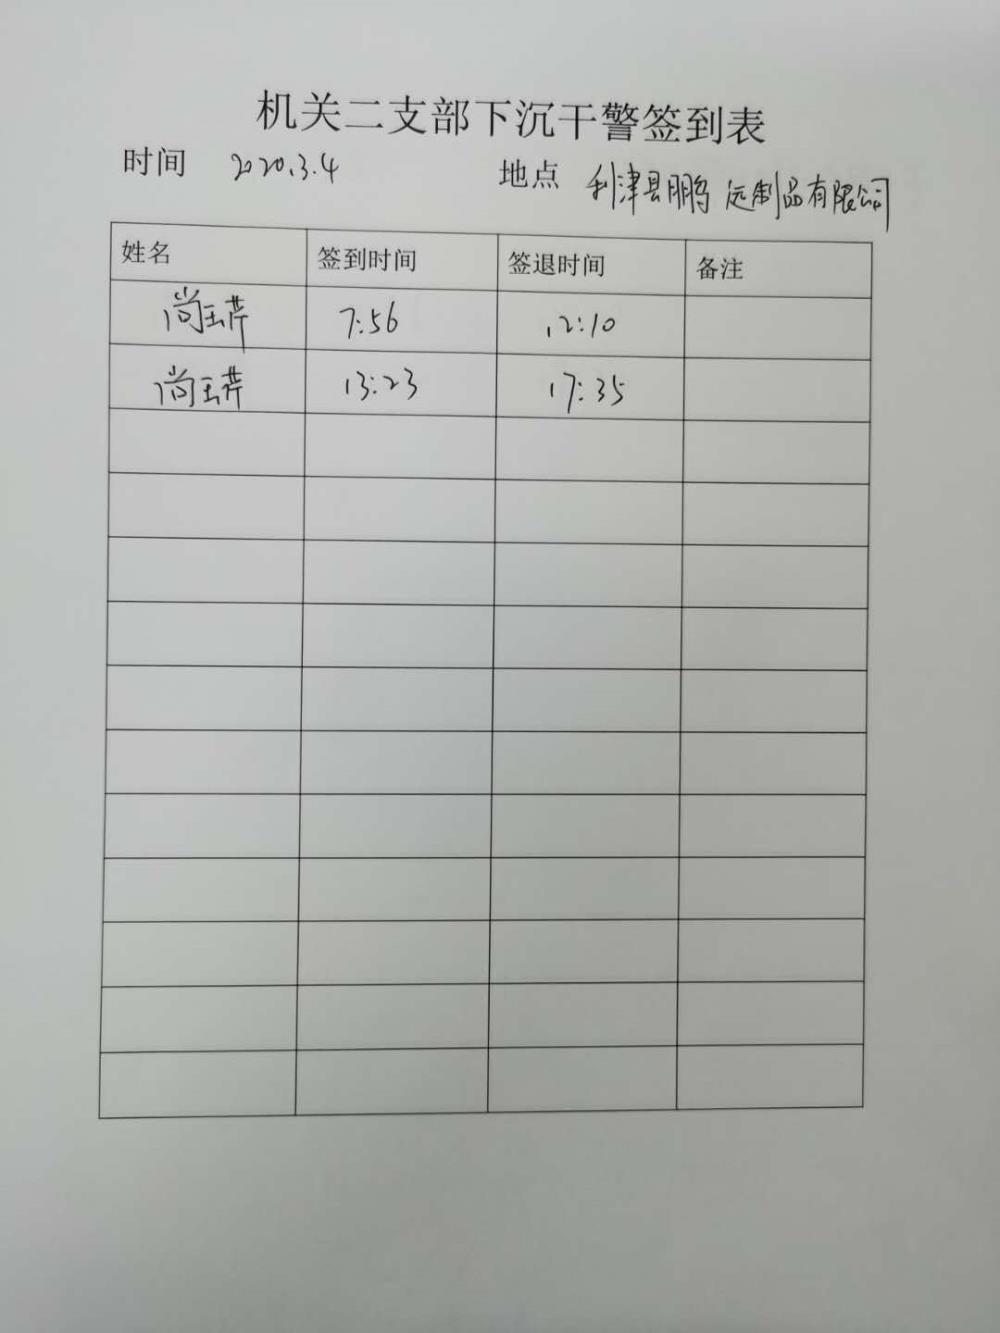 机关二支部下沉干警签到表
时间 2020.3.4 地点 利津县鹏远制品有限公司
姓名 签到时间 签退时间 备注
尚玉芹 7:56 12:10
尚玉芹 13:23 17:35